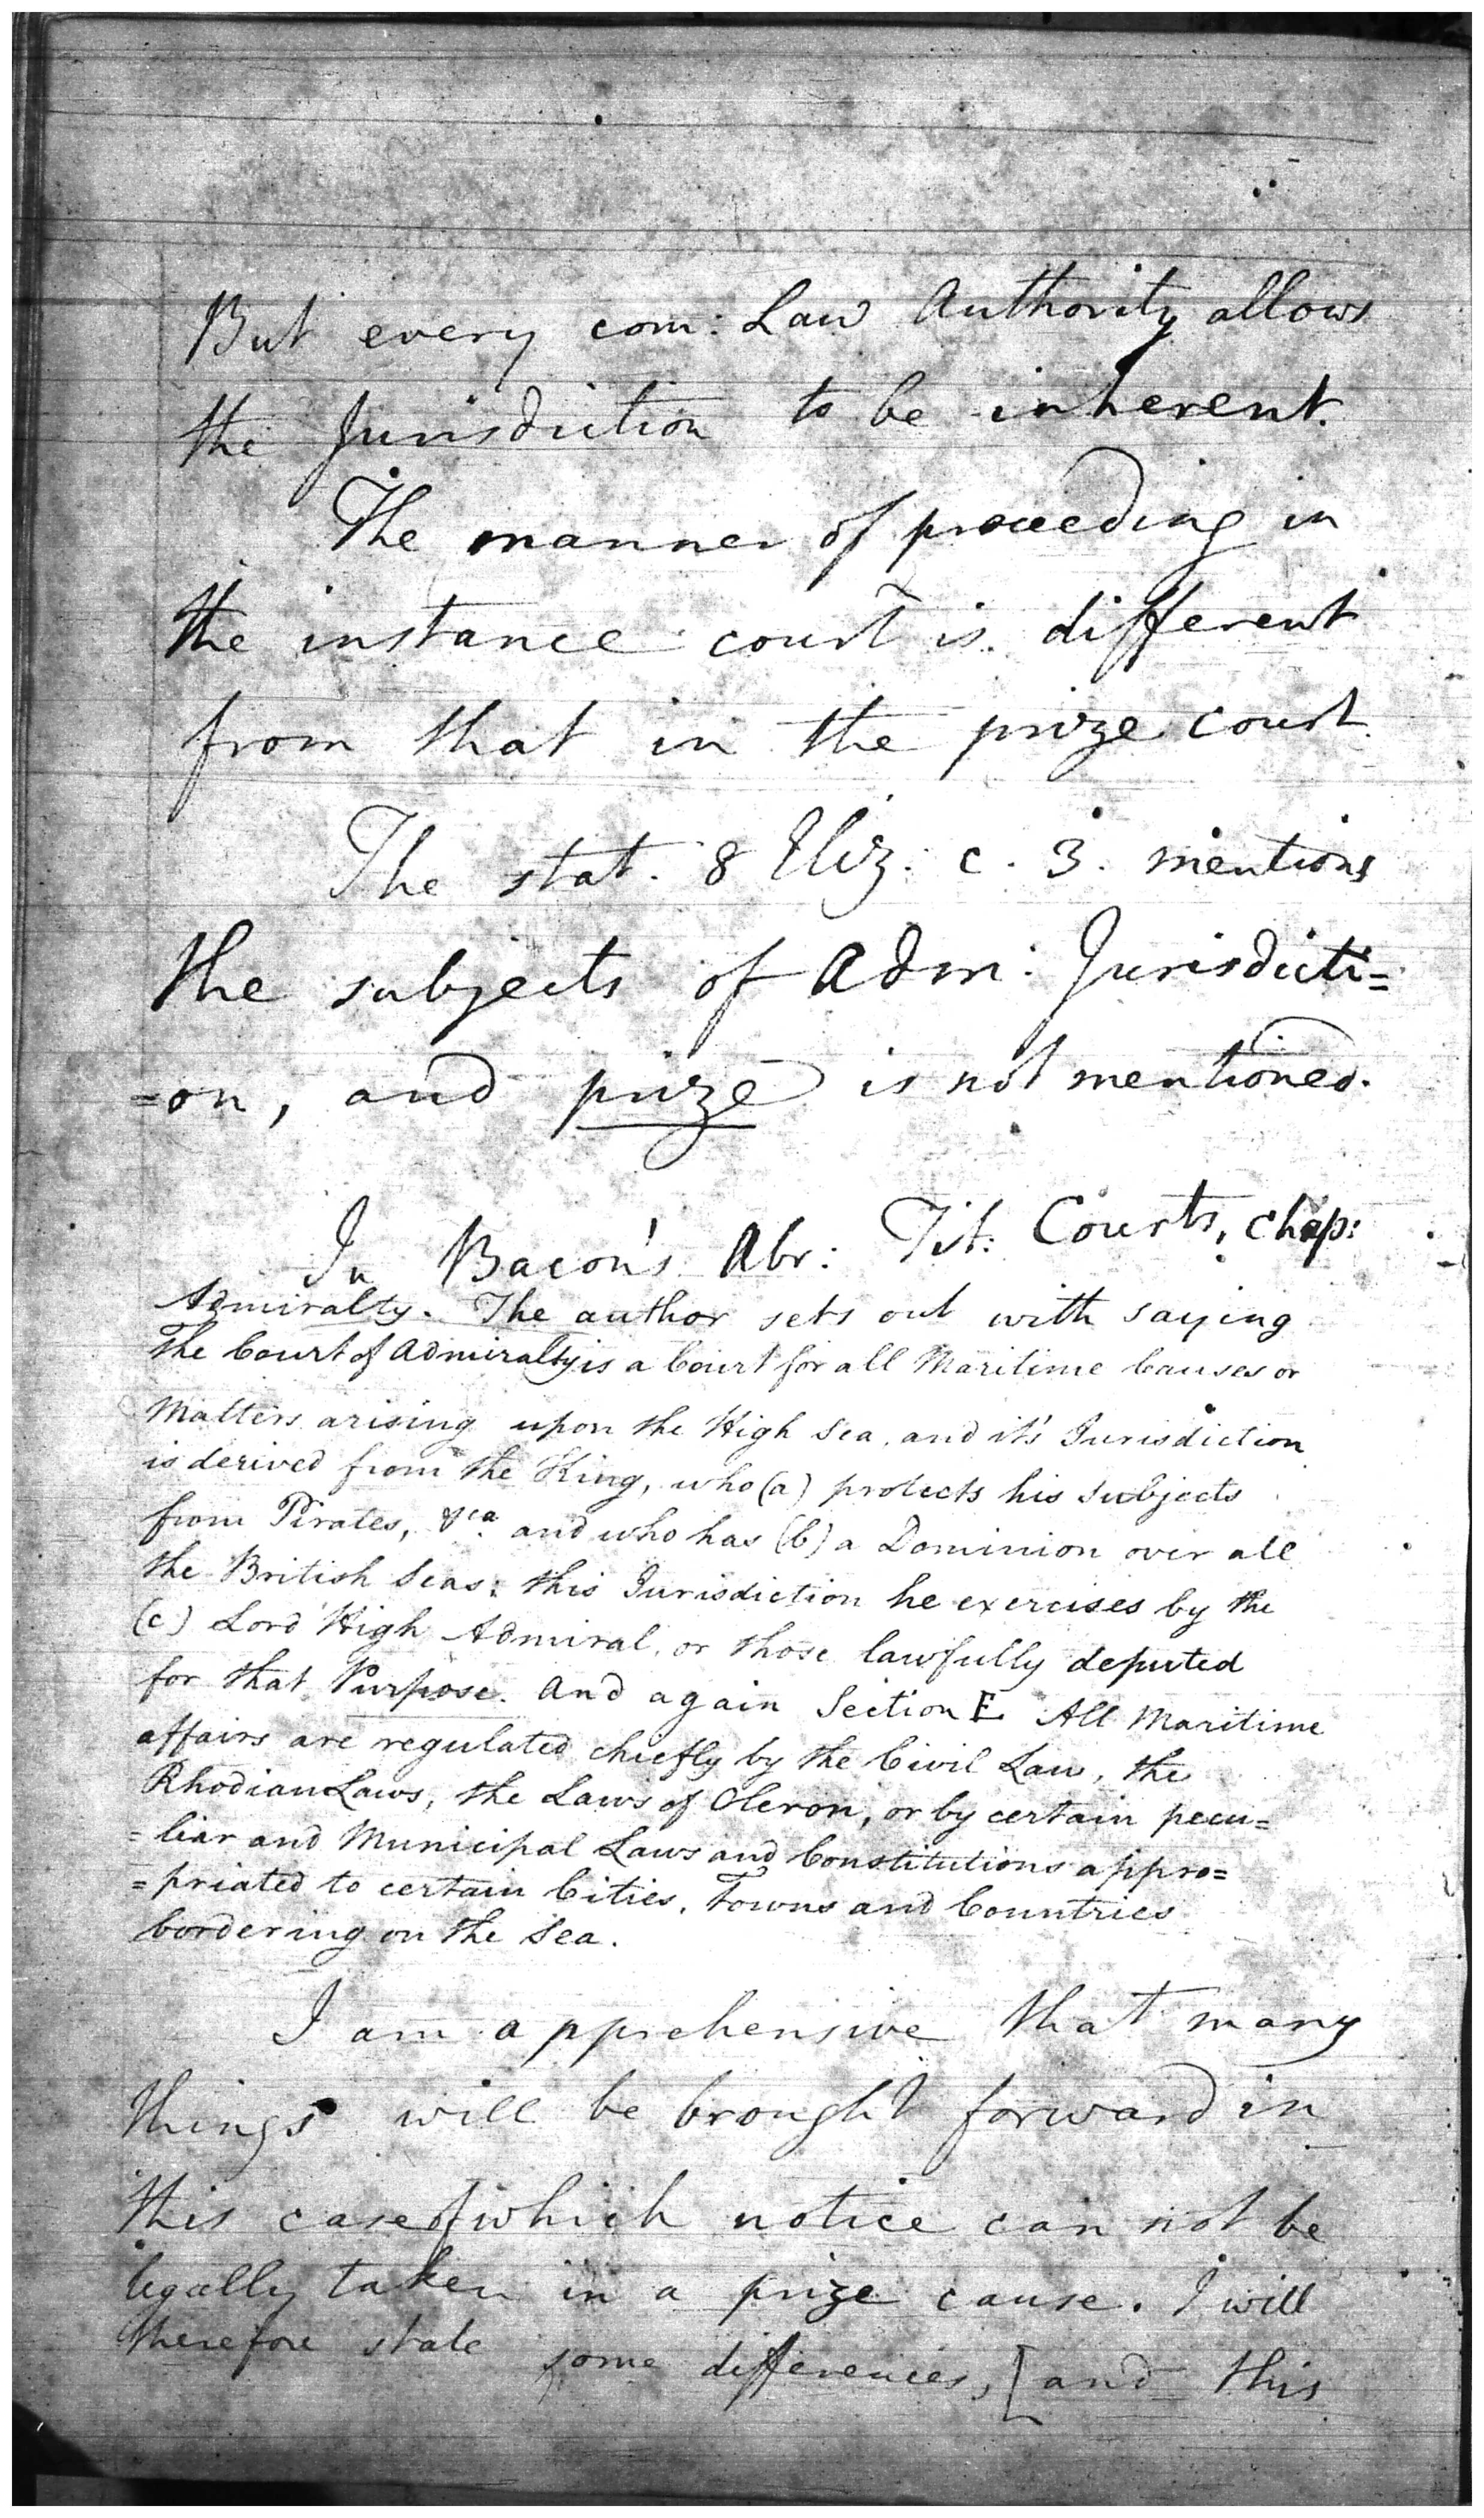 But every com: Law Authority allows
the Jurisdiction to be inherent.
The manner of proceeding in
the instance court is different
from that in the prize court.
The stat. 8 Eliz: c. 3. mentions
the subjects of Adm: Jurisdicti=
=on, and prize is not mentioned.
In Bacon's Abr: Tit: Courts, chap:
Admiralty. The author sets out with saying
The Court of Admiralty is a Court for all Maritime Causes or
Matters arising upon the High Sea, and it's Jurisdiction
is derived from the King, who (a) protects his subjects
from Pirates, &ca and who has (b) a Dominion over all
the British Seas: this Jurisdiction he exercises by the
(c) Lord High Admiral, or those lawfully deputed
for that Purpose. And again Section E All Maritime
affairs are regulated chiefly by the Civil Law, the
Rhodian Laws, the Laws of Oleron, or by certain pecu=
=liar and Municipal Laws and Constitutions appro=
=priated to certain Cities, Towns and Countries
bordering on the Sea.
I am apprehensive that many
things will be brought forward in
this case of which notice can not be
legally taken in a prize cause. I will
therefore state some differences, [and this